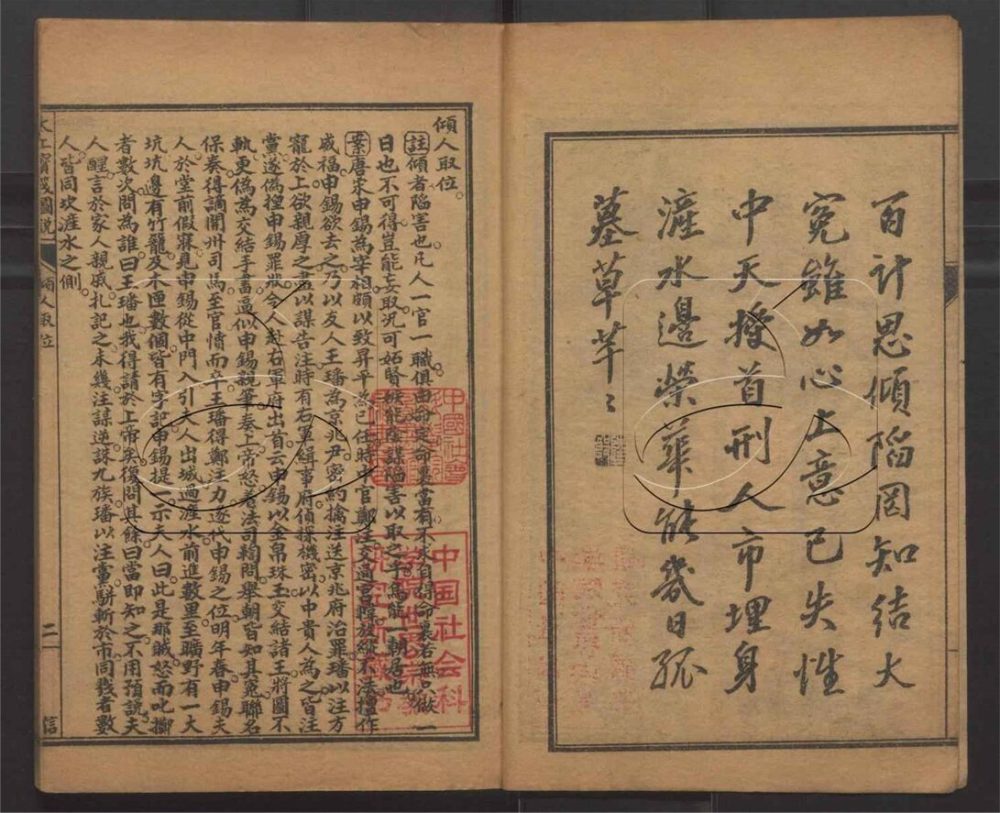 百計思傾陷罔知結大
冤雖如心上意已失性
中天授首刑人市埋身
滻水邊榮華能幾日孤
墓草芊〻
傾人取位。
註傾者陷害也。凡人一官一職俱由命定。命裏當有不求自得。命裏若無只做一
日也不可得。豈能妄取。況可妬賢嫉能陰謀陷害以取之乎。焉能一朝居也
案唐宋申錫為宰相頗以致昇平為己任。時中官鄭注交通宮掖放縱不法擅作
威福。申錫欲去之乃以友人王璠為京兆尹密約擒注送京兆府治罪。璠以注方
寵於上欲親厚之盡以謀告注。時有右軍緝事府偵探機密以中貴人為之皆注
黨遂偽揑申錫罪狀令人赴右軍府出首云申錫以金帛珠玉交結諸王將圖不
軌。更偽為交結手書逼似申錫親筆奏上帝怒着法司鞫問舉朝皆知其冤。聯名
保奏得謫開州司馬至官憤而卒。王璠得鄭注力遂代申錫之位。明年春申錫夫
人於堂前假寐見申錫從中門入引夫人出城過滻水前進數里至曠野有一大
坑。坑邊有竹籠及木匣數個皆有字記。申錫提一示夫人曰此是那賊怒而叱擲
者數次。問為誰曰王璠也。我得請於上帝矣。復問其餘曰當即知之。不用預說。夫
人醒言於家人親戚扎記之。未幾注謀逆誅九族。璠以注黨駢斬於市。同戮者數
人皆同坎滻水之側。
太上寶筏圖說
傾人取位
二
信
中国社会科